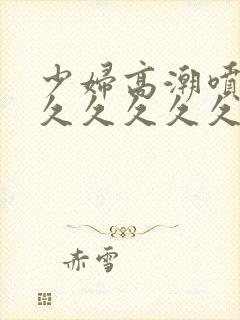 少婦高潮噴
久久久久久
赤雪